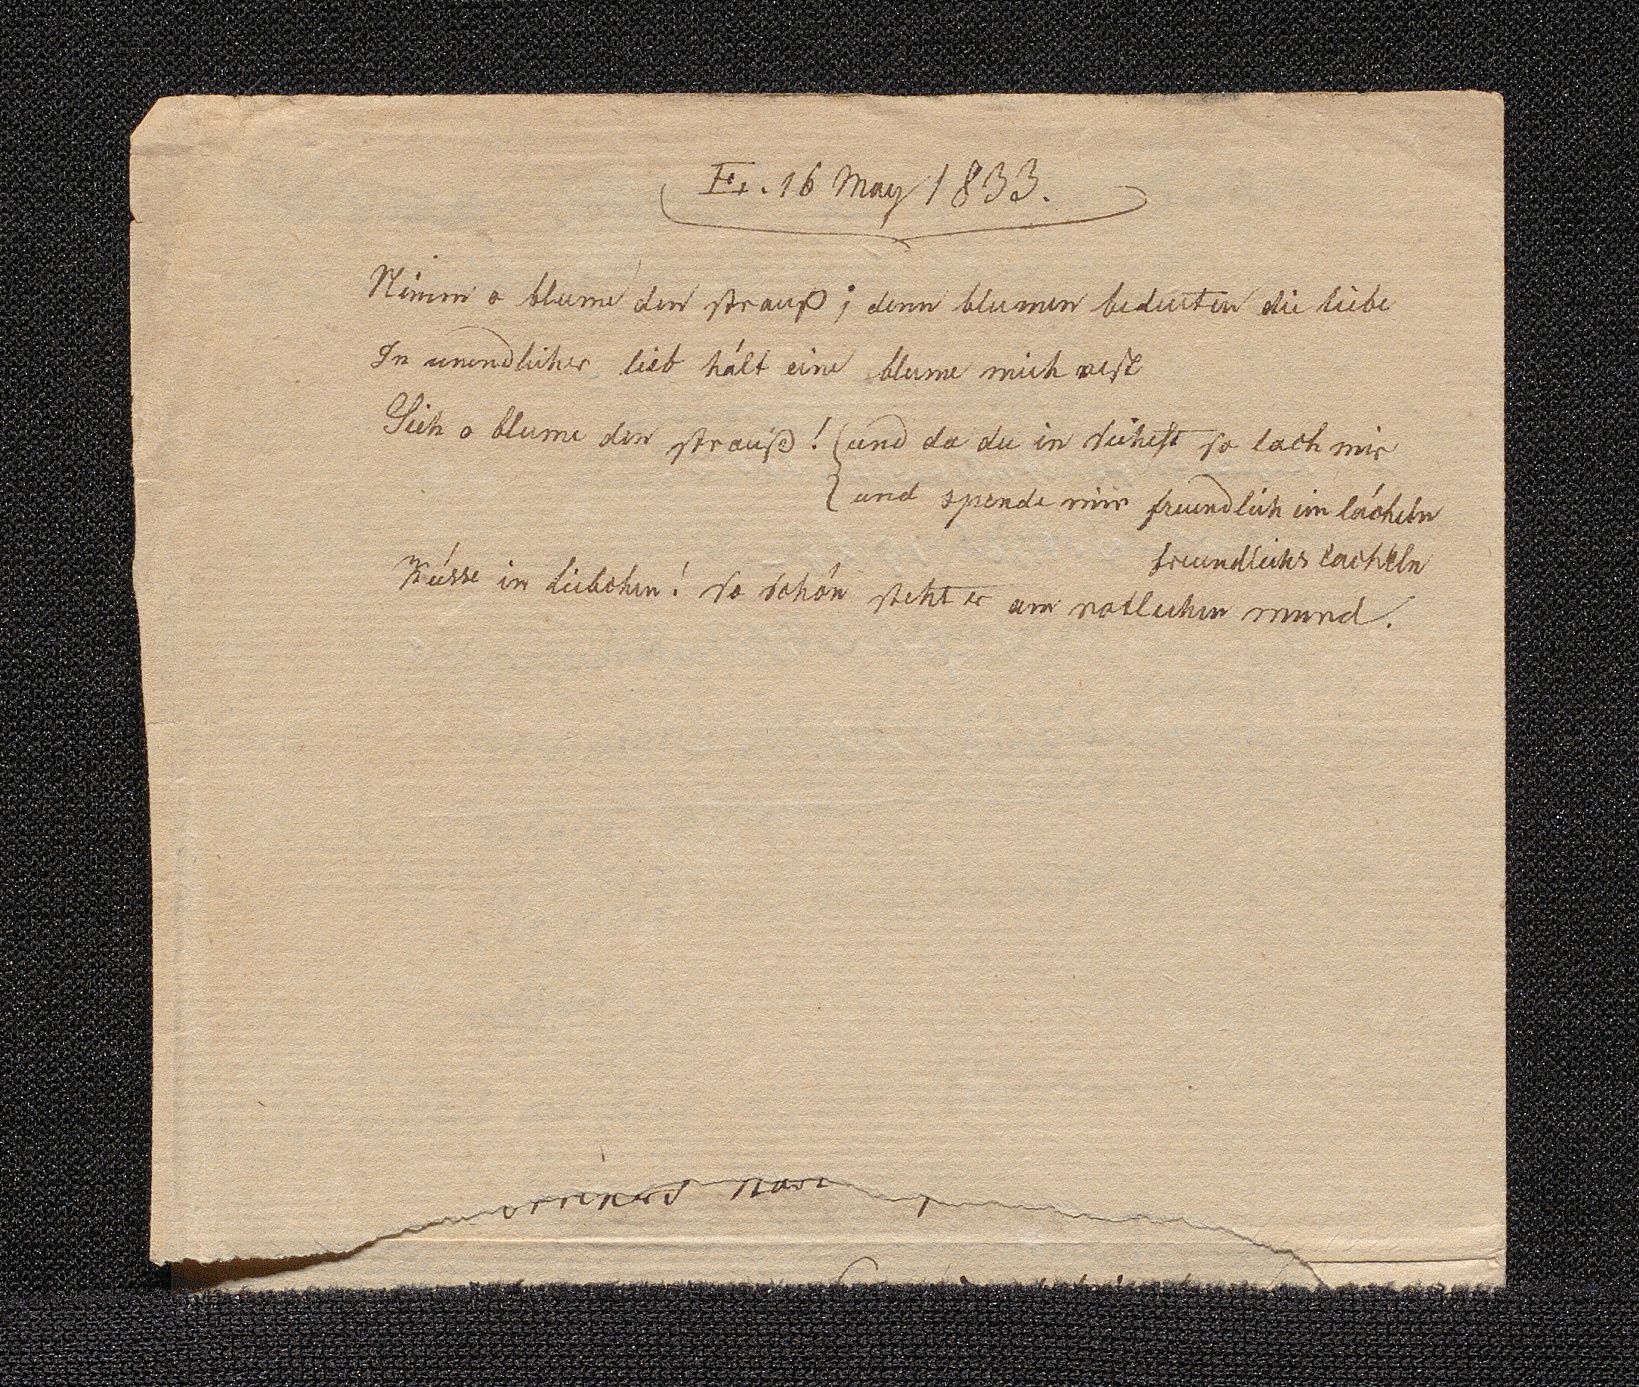 Fr. 16 May 1833.
Nimm o blume den strauß; denn blumen bedeuten die liebe
In unendlicher lieb hált eine blume mich vest
Sieh o blume den strauß! und da du in siehest so lach mir
und spende mir freundlich ein lácheln
freundlichs lacheln
Kússe in liebchen! so schón steht er am rotlichen mund.